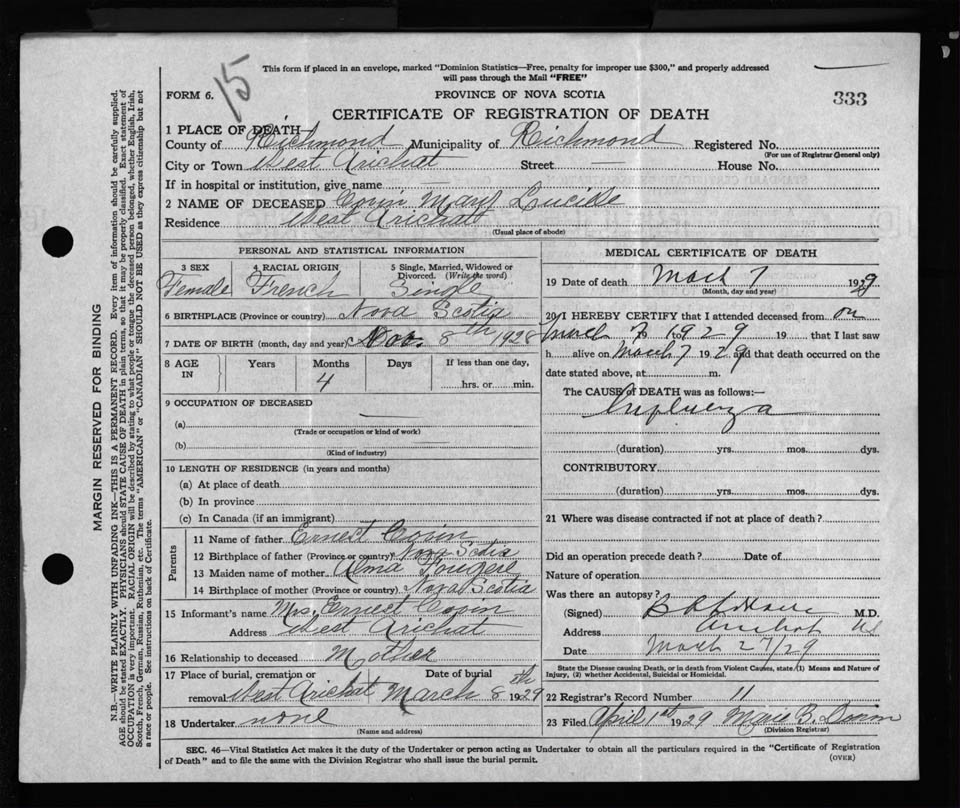 15
This form if placed in an envelope, marked "Dominion Statistics—Free, penalty for improper use $300," and properly addressed
will pass through the Mail "FREE"
FORM 6.
PROVINCE OF NOVA SCOTIA
333
CERTIFICATE OF REGISTRATION OF DEATH
1 PLACE OF DEATH—
County of Richmond Municipality of Richmond Registered No.
(For use of Registrar General only)
City or Town West Arichat Street — House No.
If in hospital or institution, give name
2 NAME OF DECEASED Covin Mary Lucille
Residence West Arichat
(Usual place of abode)
PERSONAL AND STATISTICAL INFORMATION
3 SEX Female
4 RACIAL ORIGIN French
5 Single, Married, Widowed or Divorced. (Write the word) Single
6 BIRTHPLACE (Province or country) Nova Scotia
7 DATE OF BIRTH (month, day and year) Nov. 8th 1928
8 AGE IN Years Months 4 Days If less than one day, hrs. or min.
9 OCCUPATION OF DECEASED
(a)
(Trade or occupation or kind of work)
(b)
(Kind of industry)
10 LENGTH OF RESIDENCE (in years and months)
(a) At place of death
(b) In province
(c) In Canada (if an immigrant)
Parents
11 Name of father Ernest Covin
12 Birthplace of father (Province or country) Nova Scotia
13 Maiden name of mother Alma Fougere
14 Birthplace of mother (Province or country) Nova Scotia
15 Informant's name Mrs. Ernest Covin
Address West Arichat
16 Relationship to deceased Mother
17 Place of burial, cremation or removal West Arichat Date of burial March 8th 1929
18 Undertaker none
(Name and address)
MEDICAL CERTIFICATE OF DEATH
19 Date of death March 7 1929
(Month, day and year)
20 I HEREBY CERTIFY that I attended deceased from on
March 7 to 1929 19 that I last saw
h alive on March 7 1929 and that death occurred on the
date stated above, at m.
The CAUSE of DEATH was as follows:—
Influenza
(duration) yrs. mos. dys.
CONTRIBUTORY
(duration) yrs. mos. dys.
21 Where was disease contracted if not at place of death?
Did an operation precede death? Date of
Nature of operation
Was there an autopsy?
(Signed) M.D.
Address Arichat NS
Date March 27/29
State the Disease causing Death, or in death from Violent Causes, state (1) Means and Nature of
Injury, (2) whether Accidental, Suicidal or Homicidal.
22 Registrar's Record Number 11
23 Filed April 1st 1929 Marie B.
(Division Registrar)
SEC. 46—Vital Statistics Act makes it the duty of the Undertaker or person acting as Undertaker to obtain all the particulars required in the "Certificate of Registration
of Death" and to file the same with the Division Registrar who shall issue the burial permit.
(OVER)
MARGIN RESERVED FOR BINDING
N.B.—WRITE PLAINLY WITH UNFADING INK—THIS IS A PERMANENT RECORD. Every item of information should be carefully supplied.
AGE should be stated EXACTLY. PHYSICIANS should STATE CAUSE OF DEATH in plain terms, so that it may be properly classified. Exact statement of
OCCUPATION is very important. RACIAL ORIGIN will be described by stating to what people or tongue the deceased person belonged, whether English, Irish,
Scotch, French, German, Russian, Ruthenian, etc. The terms "AMERICAN" or "CANADIAN" SHOULD NOT BE USED as they express citizenship but not
a race or people. See instructions on back of Certificate.